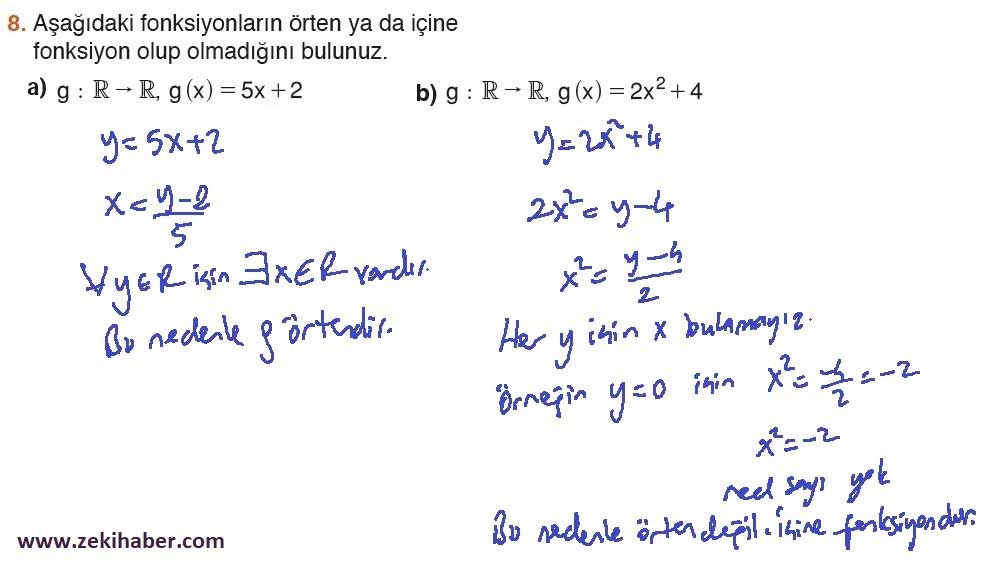 8. Aşağıdaki fonksiyonların örten ya da içine
fonksiyon olup olmadığını bulunuz.
a) g : ℝ → ℝ, g(x) = 5x + 2
y = 5x+2
x = (y-2)/5
∀y∈R için ∃x∈R vardır.
Bu nedenle g örtendir.
b) g : ℝ → ℝ, g(x) = 2x² + 4
y = 2x²+4
2x² = y-4
x² = (y-4)/2
Her y için x bulamayız.
örneğin y=0 için x² = -4/2 = -2
x² = -2
reel sayı yok
Bu nedenle örten değil. İçine fonksiyondur.
www.zekihaber.com